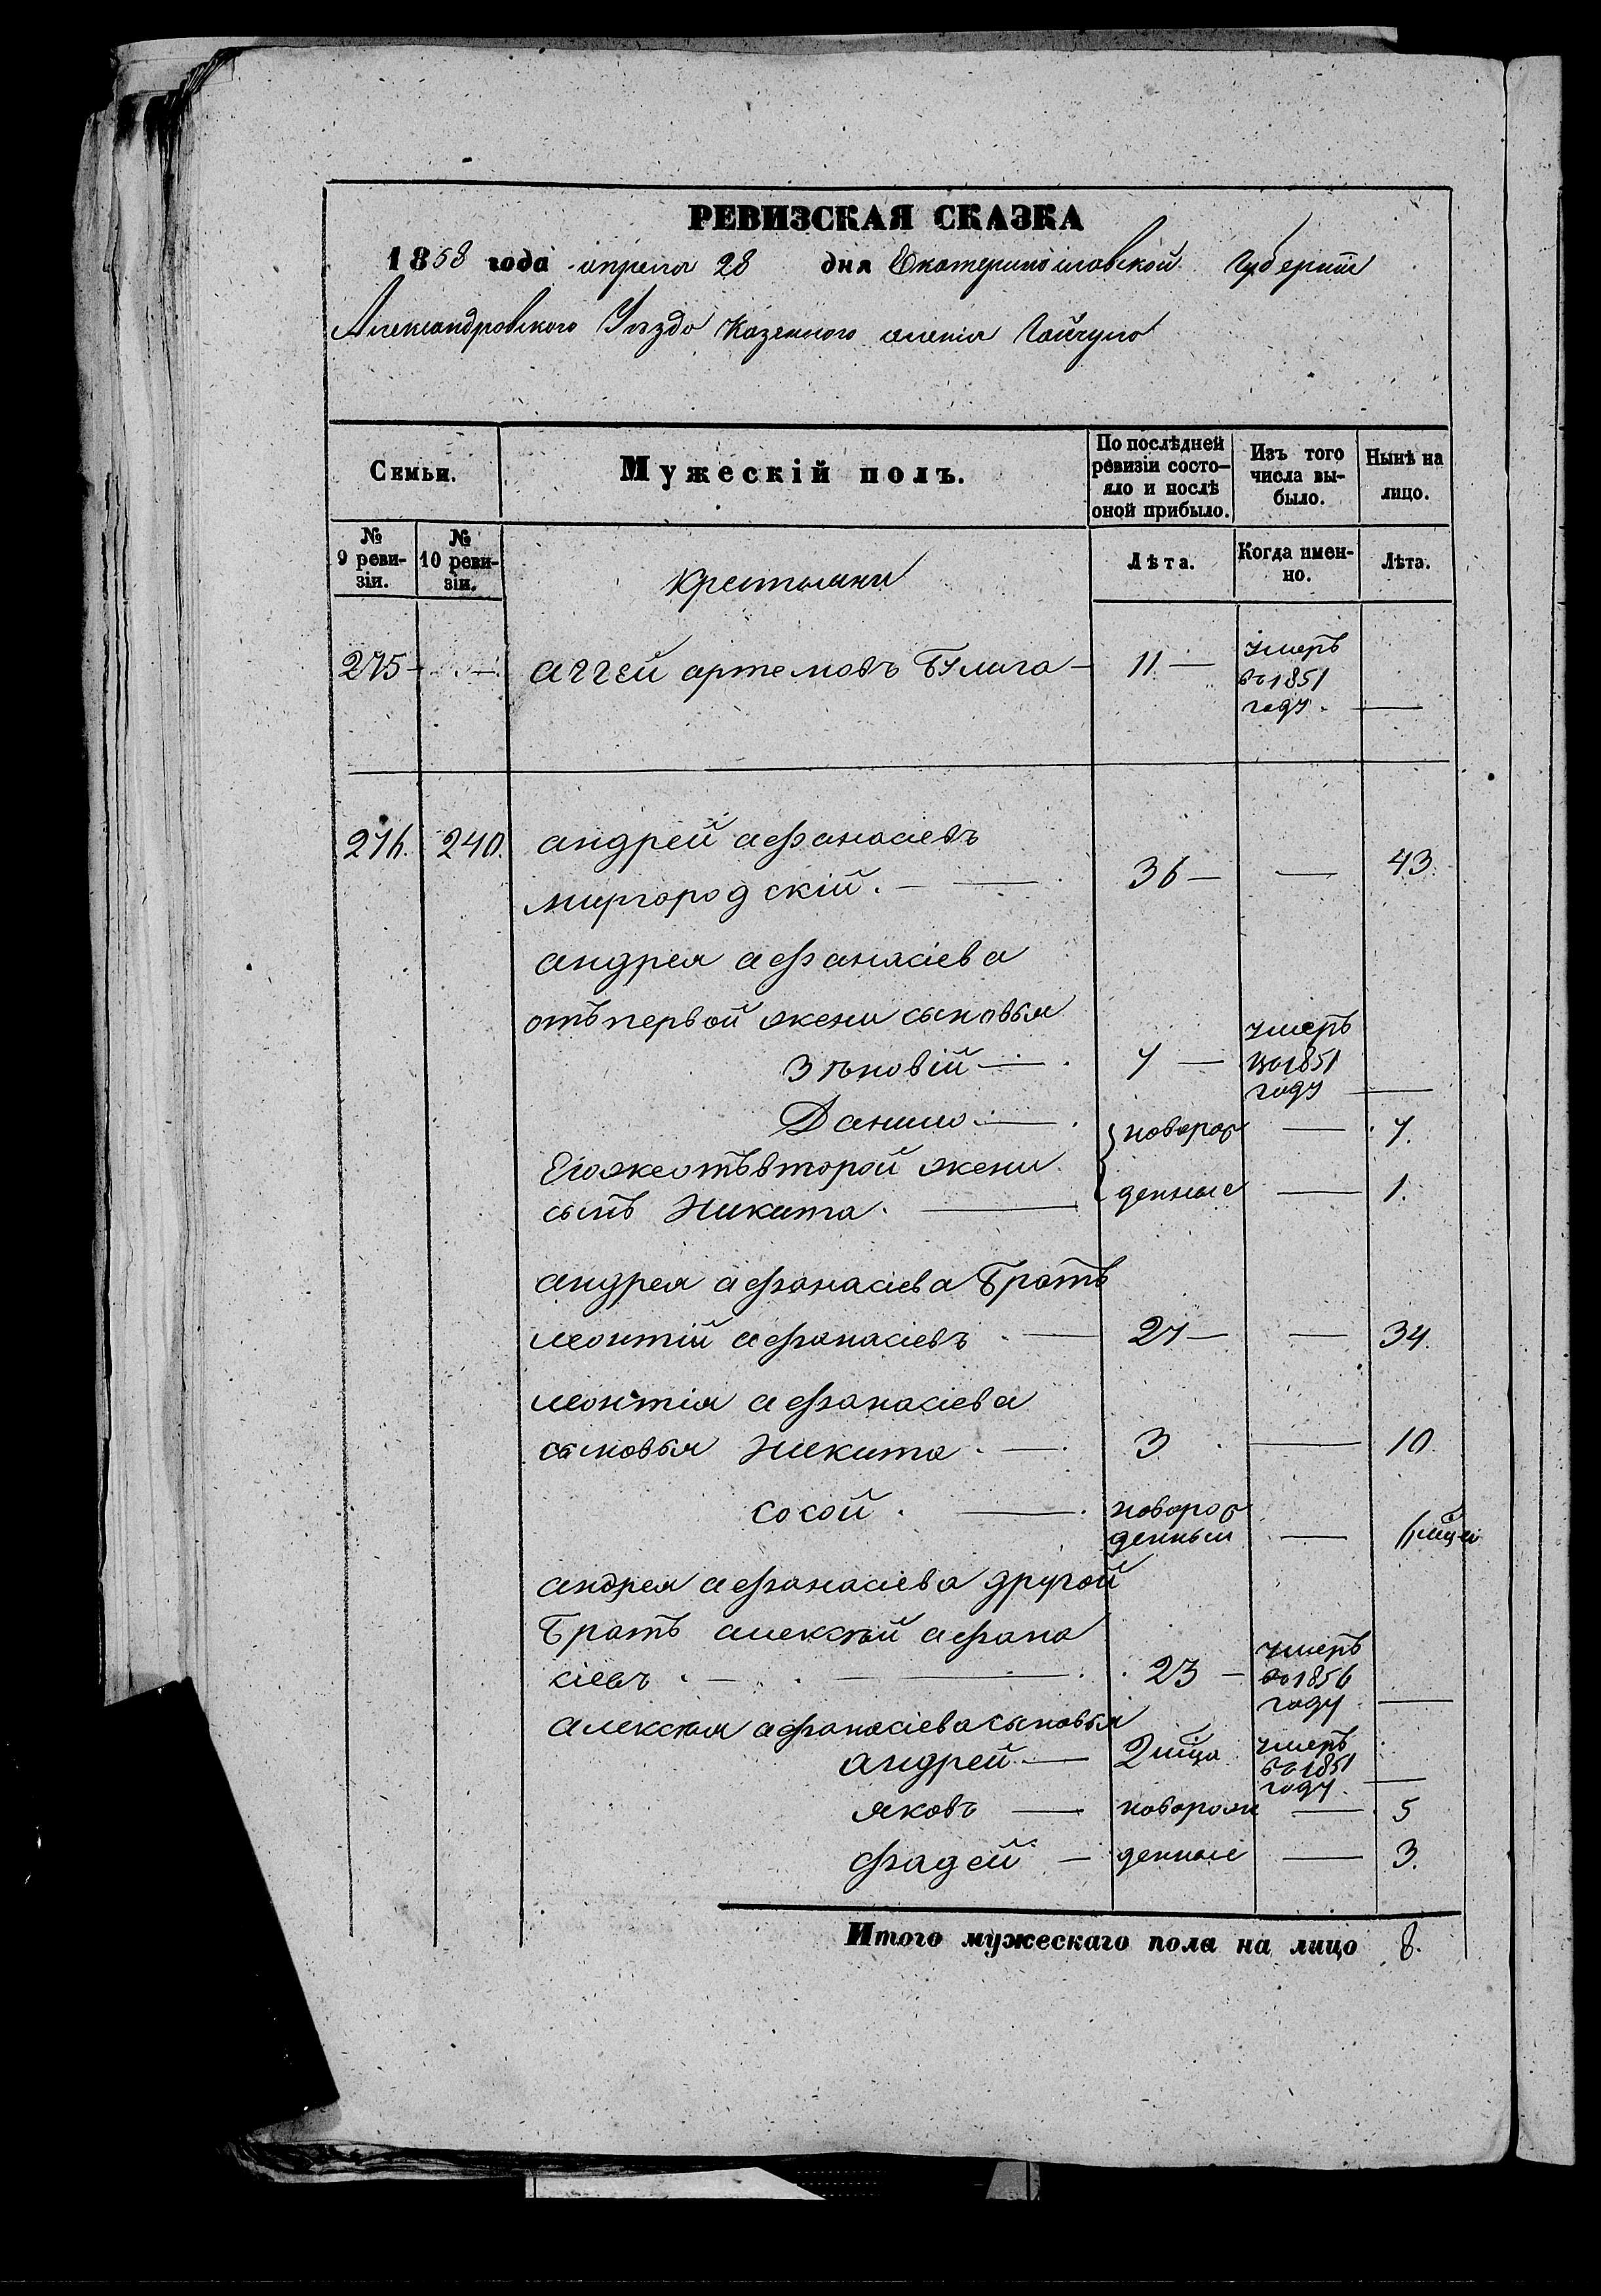 РЕВИЗСКАЯ СКАЗКА
1858 года апреля 28 дня Екатеринославской Губернии
Александровского Уѣзда Казенного селенія Гайчула
Семьи.
Мужескій полъ.
По послѣдней ревизіи состо-
яло и послѣ оной прибыло.
Изъ того числа вы-
было.
Нынѣ на лицо.
№ 9 реви-
зіи.
№ 10 реви-
зіи.
Крестьяни
Лѣта.
Когда имен-
но.
Лѣта.
275 — — аггей артемовъ — 11 — умеръ
въ 1851
году. —
276. 240. андрей афанасіевъ
миргородскій. — 36 — — 43.
андрея афанасіева
отъ первой жени сыновья
Зѣновій — 7 — умеръ
въ 1851
году —
Данило — новорож — 7.
Егожеотъвторой жени
сынъ Никита. — денные — 1.
андрея афанасіева Братъ
леонтій афанасіевъ — 27 — — 34.
леонтія афанасіева
сыновья Никита — 3. — 10.
сосой. — новорож
денный —
андрея афанасіева другой
Братъ алексѣй афана
сіевъ — 23 — умеръ
въ 1856
году. —
алексѣя афанасіева сыновья
андрей — 2 мѣца умеръ
въ 1851
году. —
яковъ — новорож — 5
фадей — денные — 3.
Итого мужескаго пола на лицо 8.